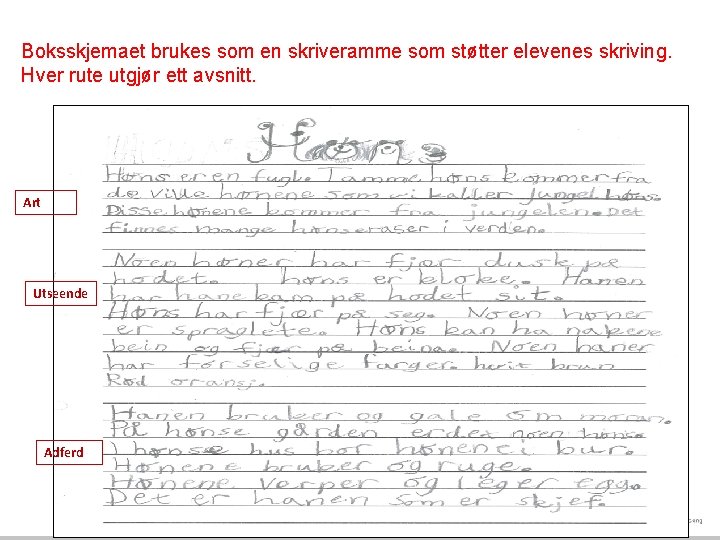 Boksskjemaet brukes som en skriveramme som støtter elevenes skriving.
Hver rute utgjør ett avsnitt.
Høns
Høns er en fugl. Tamme høns kommer fra
de ville hønene som vi kaller jungel høns.
Disse hønene kommer fra jungelen. Det
finnes mange hønseraser i verden.
Art
Noen høner har fjær dusk på
hodet. høns er kloke. Hanen
har hane kam på hodet sit.
Utseende
Høns har fjær på seg. Noen høner
er spraglete. Høns kan ha nakene
bein og fjær på beina. Noen haner
har forselige farger. hvit brun
Rød oransj.
Hanen bruker og gale om moran.
På hønse gården er det noen høns.
I hønse hus bor hønene i bur.
Adferd
Hønene bruker og ruge.
Hønene verper og leger egg.
Det er hanen som er skjef.